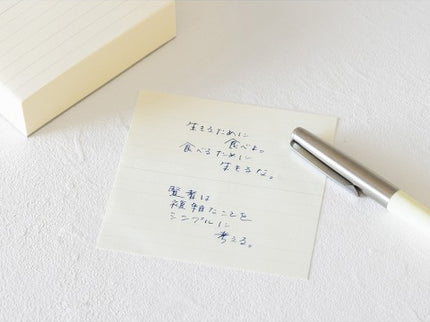 生きるために
食べよ。
食べるために
生きるな。
賢者は
複雑なことを
シンプルに
考える。